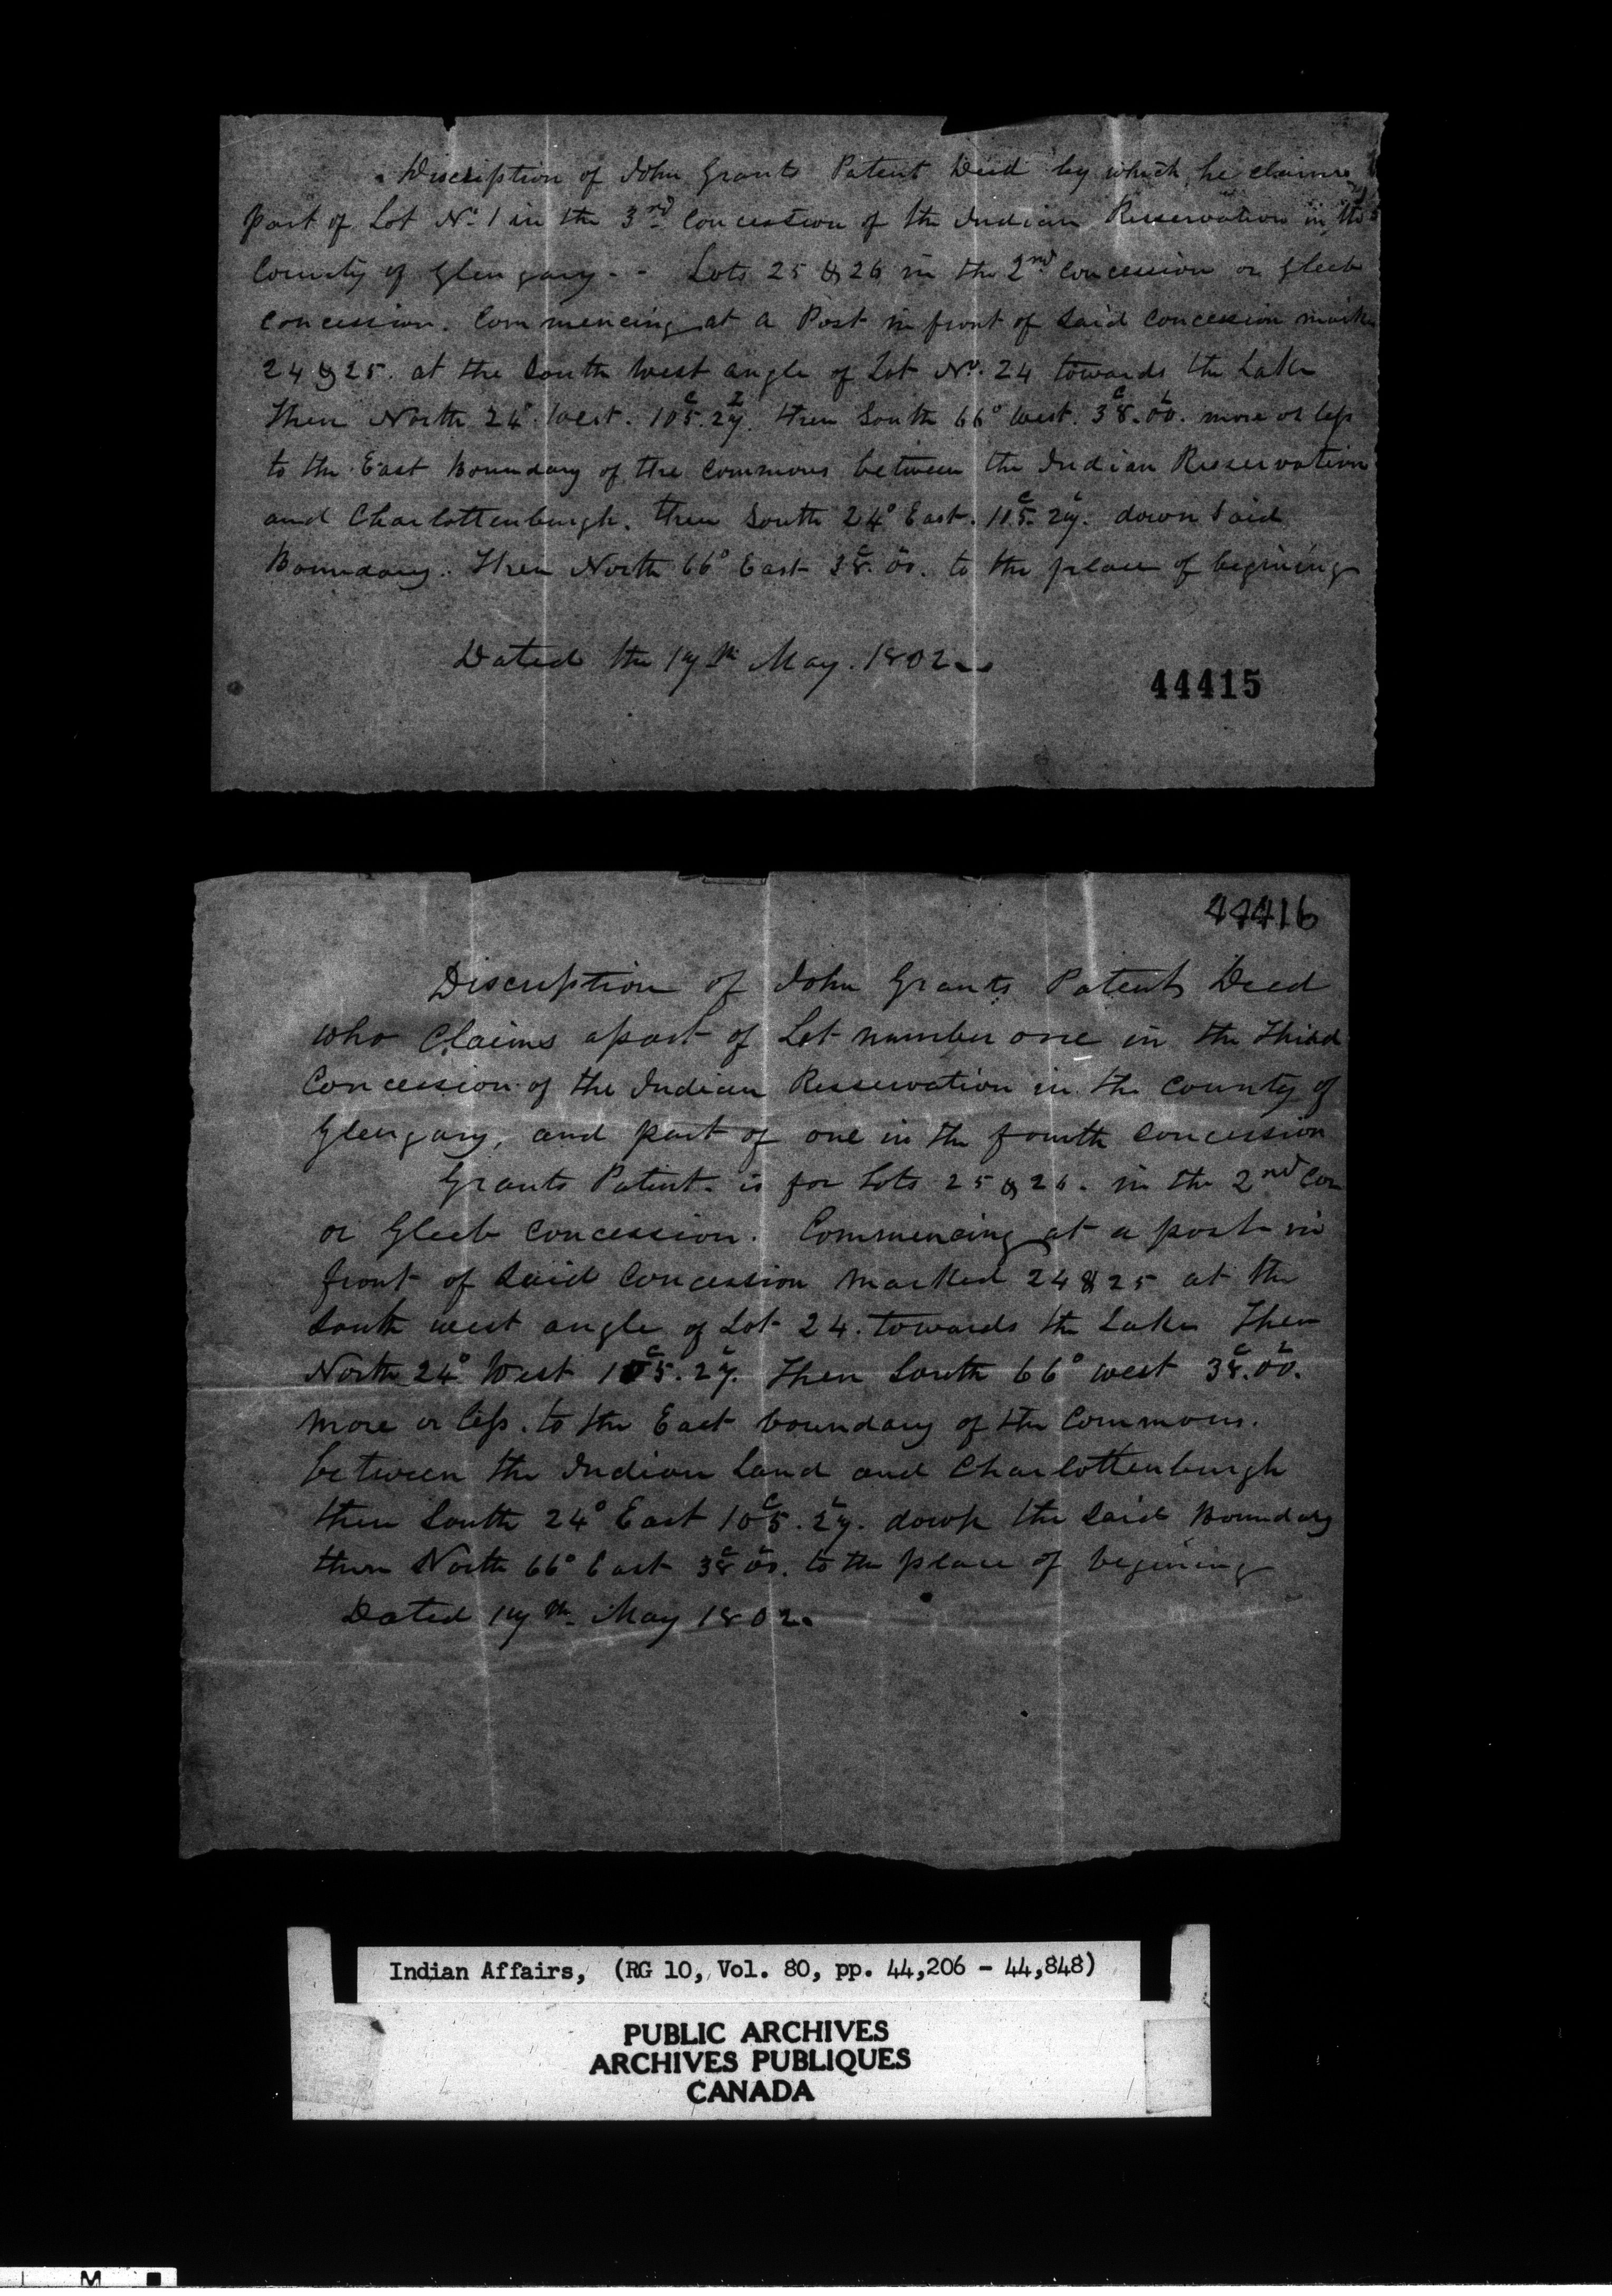 Discription of John Grants Patent Deed by which he claims
part of Lot No. 1 in the 3rd Concession of the Indian Reservation in the
County of Glengary - - Lots 25 & 26 in the 2nd Concession or Gleeb
Concession. Commencing at a Post in front of Said Concession mark
24 & 25. at the South West angle of Lot No. 24 towards the Lake
Then North 24° West. 105.c 27.l then South 66° West. 38.c 00.l more or less
to the East Boundary of the Commons between the Indian Reservation
and Charlottenburgh. then South 24° East. 105.c 27.l down Said
Boundary. Then North 66° East 38.c 00.l to the place of begining
Dated the 17th May. 1802
44415
44416
Discription of John Grants Patent Deed
who Claims apart of Lot number one in the third
Concession of the Indian Reservation in the County of
Glengary, and part of one in the fourth Concession
Grants Patent is for Lots 25 & 26. in the 2nd Con
or Gleeb Concession. Commencing at a post in
front of Said Concession marked 24 & 25 at the
South west angle of Lot 24. towards the Lake Then
North 24° West 105.c 27.l Then South 66° west 38.c 00.l
more or less. to the East boundary of the Commons.
between the Indian Land and Charlottenburgh
then South 24° East 105.c 27.l down the Said Boundary
then North 66° East 38c 00.l to the place of begining
Dated 17th May 1802.
Indian Affairs, (RG 10, Vol. 80, pp. 44,206 - 44,848)
PUBLIC ARCHIVES
ARCHIVES PUBLIQUES
CANADA
M